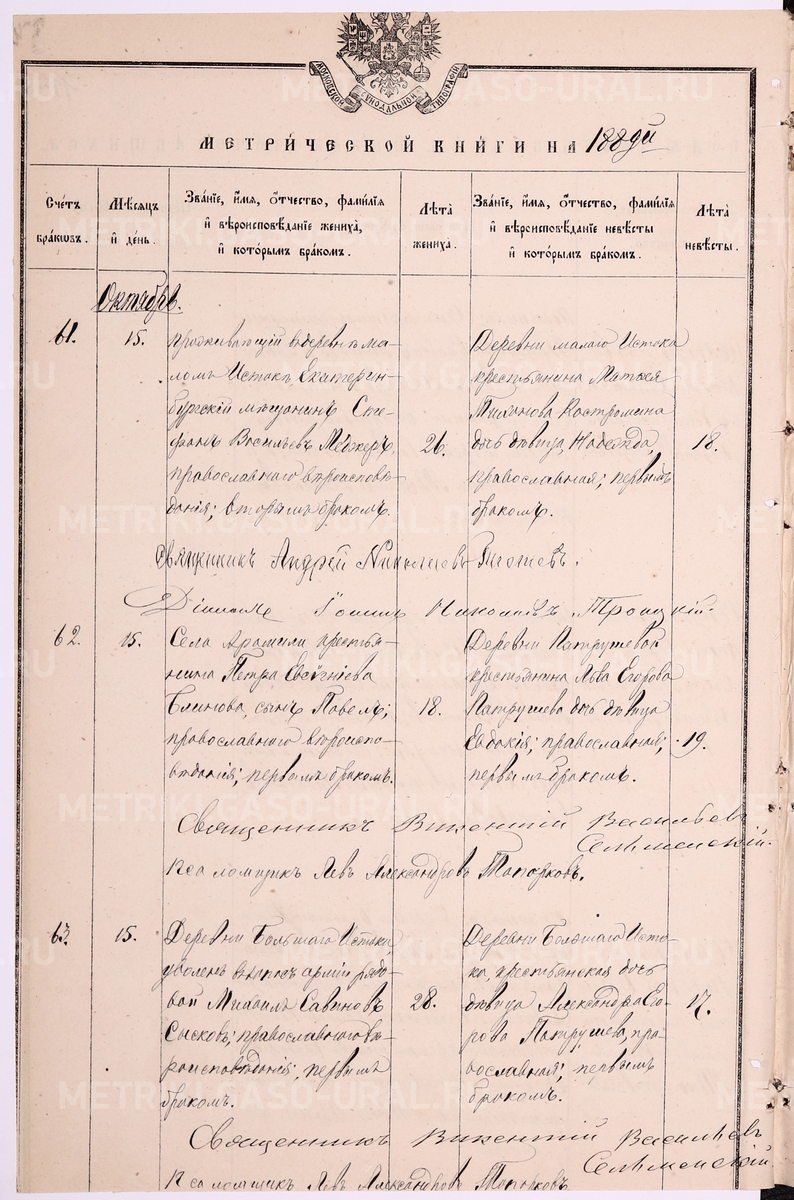 МОСКОВСКОЙ СѴНОДАЛЬНОЙ ТИПОГРАФІИ
МЕТРИЧЕСКОЙ КНИГИ НА 188 гдъ
Счетъ браковъ.
Мѣсяцъ и день.
Званіе, имя, отчество, фамилія и вѣроисповѣданіе жениха, и которымъ бракомъ.
Лѣта жениха.
Званіе, имя, отчество, фамилія и вѣроисповѣданіе невѣсты и которымъ бракомъ.
Лѣта невѣсты.
Октябрь.
61.
15.
проживающій въ деревнѣ ма-
ломъ Истокѣ, Екатерин-
бургскій мѣщанинъ Сте-
фанъ Васильевъ
православнаго вѣроисповѣ-
данія; вторымъ бракомъ.
26.
Деревни малаго Истока
крестьянина Матвея
Тиханова Костромина
дочь дѣвица Надежда,
православная; первымъ
бракомъ.
18.
Священникъ Андрей Николаевъ
Діаконъ Іоаннъ Николаевъ Троицкій.
62.
15.
Села Арамили крестья-
нина Петра Евсигніева
Блинова, сынъ Павелъ;
православнаго вѣроиспо-
вѣданія; первымъ бракомъ.
18.
Деревни Патрушевой
крестьянина Льва Егорова
Патрушева дочь дѣвица
Евдокія; православная;
первымъ бракомъ.
19.
Священникъ Викентій Васильевъ
Сельменскій.
Псаломщикъ Левъ Александровъ Топорковъ.
63.
15.
Деревни Большаго Истока,
уволен. въ запасъ арміи рядо-
вой Михаилъ Савиновъ
Сысковъ; православнаго вѣ-
роисповѣданія, первымъ
бракомъ.
28.
Деревни Большаго Исто-
ка, крестьянская дочь
дѣвица Александра Его-
рова Патрушева, пра-
вославная; первымъ
бракомъ.
17.
Священникъ Викентій Васильевъ
Сельменскій.
Псаломщикъ Левъ Александровъ Топорковъ
METRIKI.GASO-URAL.RU